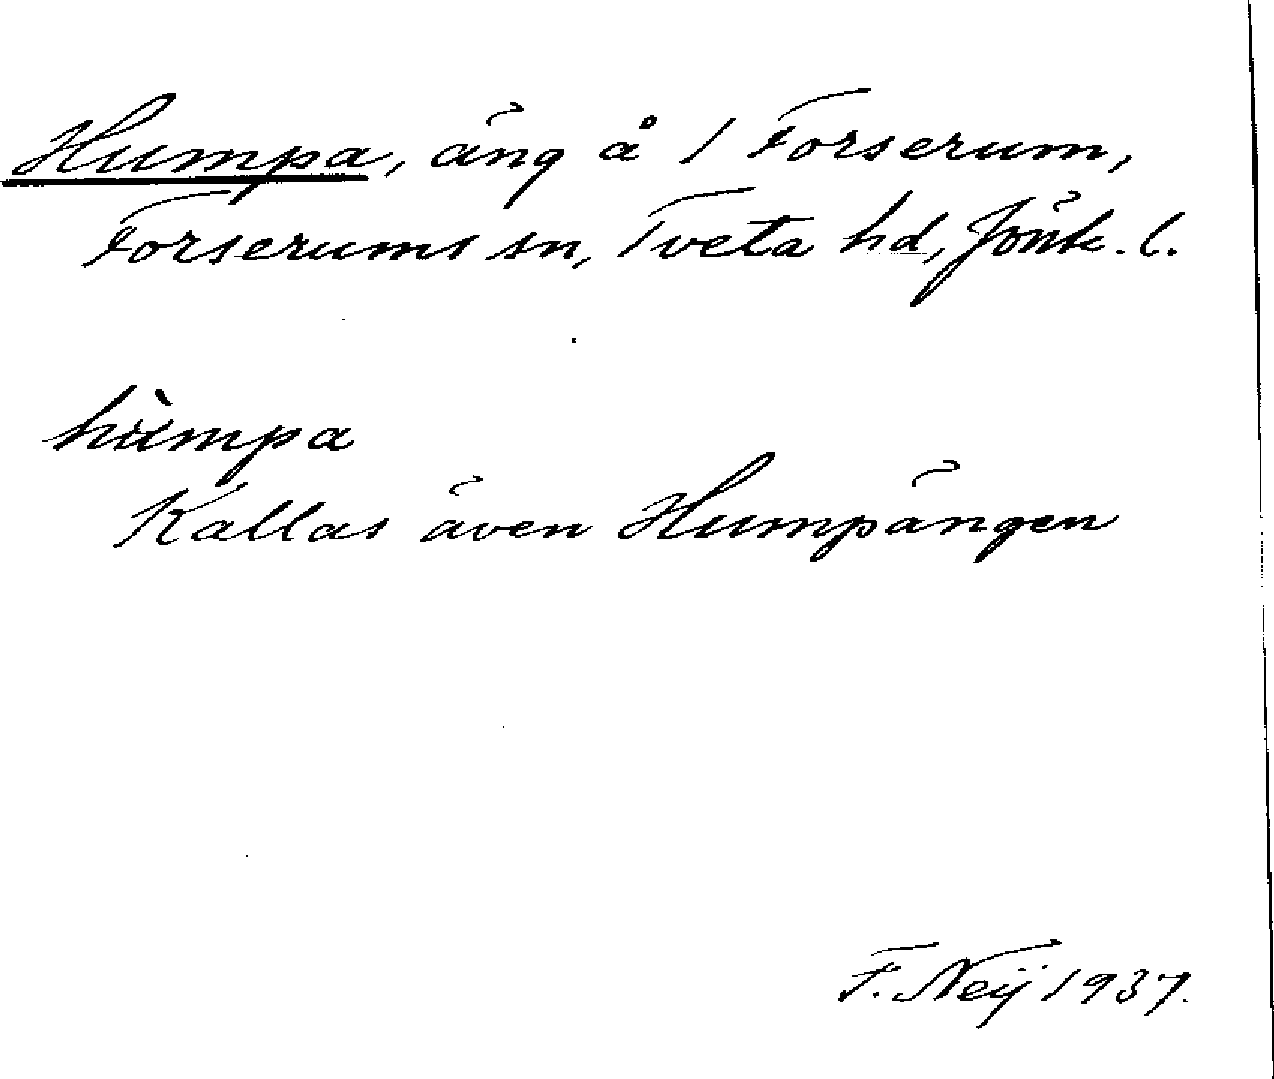 Humpa, äng å 1 Forserum,
Forserums sn, Tveta hd, Jönk. l.
hùmpa
Kallas även Humpängen
F. Neij 1937.